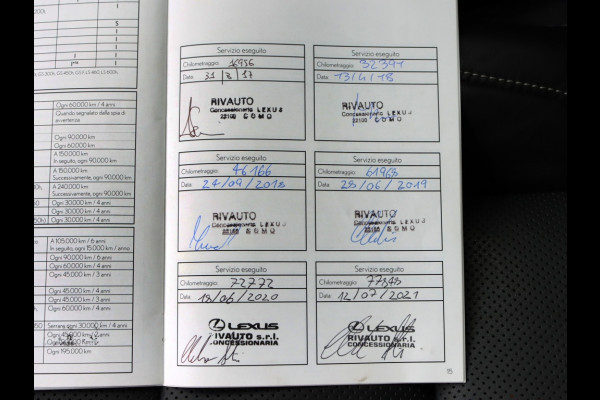 200t,
S
I
I
I
I
I I
I
GS 300h, GS 450h, GS F, LS 460, LS 600h,
Ogni 60.000 km / 4 anni
Quando segnalato dalla spia di
avvertenza
Ogni 90.000 km
Ogni 60.000 km
A 150.000 km
In seguito, ogni 90.000 km
A 150.000 km
Successivamente, ogni 90.000 km
A 240.000 km
Successivamente, ogni 90.000 km
Ogni 30.000 km / 4 anni
Ogni 30.000 km / 4 anni
A 105.000 km / 6 anni
In seguito, ogni 15.000 km / anno
Ogni 90.000 km / 6 anni
Ogni 60.000 km / 4 anni
Ogni 45.000 km / 3 anni
Ogni 45.000 km / 3 anni
Ogni 60.000 km / 4 anni
Ogni 30.000 km / 4 anni
Serrare ogni 30.000 km / 4 anni
Ogni 195.000 km
Servizio eseguito
Chilometraggio: 16956
Data: 31 / 3 / 17
RIVAUTO
Concessionaria LEXUS
22100 COMO
Servizio eseguito
Chilometraggio: 32391
Data: 13/4/18
RIVAUTO
Concessionaria LEXUS
22100 COMO
Servizio eseguito
Chilometraggio: 46166
Data: 24/09/2018
RIVAUTO
Concessionaria LEXUS
22100 COMO
Servizio eseguito
Chilometraggio: 61968
Data: 28/06/2019
RIVAUTO
Concessionaria LEXUS
22100 COMO
Servizio eseguito
Chilometraggio: 72772
Data: 18/06/2020
LEXUS
RIVAUTO s.r.l.
CONCESSIONARIA
Servizio eseguito
Chilometraggio: 77848
Data: 12/07/2021
LEXUS
RIVAUTO s.r.l.
CONCESSIONARIA
15